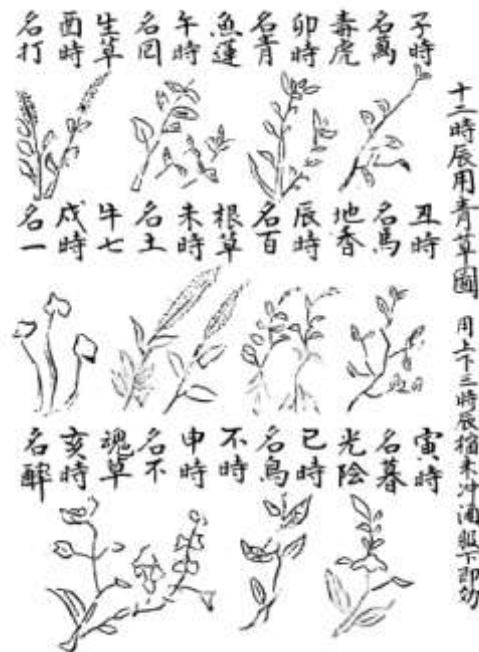 十二時辰用青草圖 用上下三時辰搗末沖酒服下即効
子時
名萬
毒虎
卯時
名青
魚蓮
午時
名回
生草
酉時
名打
丑時
名馬
地香
辰時
名百
根草
未時
名土
牛七
戌時
名一
寅時
名暮
光陰
巳時
名鳥
不時
申時
名不
魂草
亥時
名醉